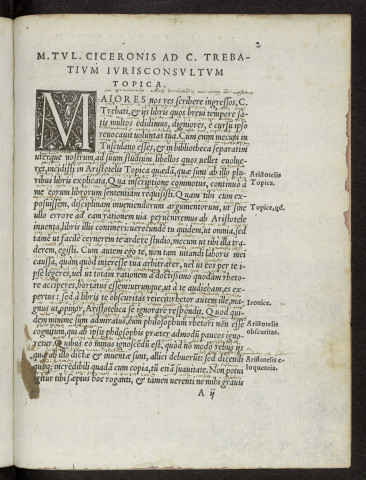 2
M. TVL. CICERONIS AD C. TREBA-
TIVM IVRISCONSVLTVM
TOPICA.
MAIORES nos res scribere ingressos, C.
Trebati, & ijs libris quos breui tempore sa-
tis multos edidimus, digniores, è cursu ipso
reuocauit voluntas tua. Cum enim mecum in
Tusculano esses, & in bibliotheca separatim
vterque nostrûm ad suum studium libellos quos vellet euolue-
ret, incidisti in Aristotelis Topica quædã, quæ sunt ab illo plu-
Aristotelis
ribus libris explicata. Qua inscriptione commotus, continuò à
Topica.
me eorum librorum sententiam requisisti. Quam tibi cum ex-
posuissem, disciplinam inueniendorum argumentorum, vt sine
Topice, qd.
illo errore ad eam rationem via perueniremus ab Aristotele
inuenta, libris illis contineri: verecundè tu quidem, vt omnia, sed
tamẽ vt facilè cernerem te ardere studio, mecum vt tibi illa tra-
derem, egisti. Cum autem ego te, non tam vitandi laboris mei
caussa, quàm quòd interesse tua arbitrarer, vel vt eos per te i-
pse legeres, vel vt totam rationem à doctissimo quodam rheto-
re acciperes, hortatus essem: vtrunque, vt à te audiebam, es ex-
pertus: sed à libris te obscuritas reiecit: rhetor autem ille, ma-
Ironice.
gnus vt opinor, Aristotelica se ignorare respondit. Quod qui-
dem minime sum admiratus, eum philosophum rhetori non esse
Aristotelis
cognitum, qui ab ipsis philosophis præter admodũ paucos igno-
obscuritas.
retur. Quibus eo minus ignoscẽdũ est, quòd nõ modò rebus ijs
quæ ab illo dictæ & inuentæ sunt, allici debuerũt: sed dicẽdi
Aristotelis e-
quoq; incredibili quadã cum copia, tũ etiã suauitate. Non potui
loquentia.
igitur tibi sæpius hoc roganti, & tamen verenti ne mihi grauis
A ij